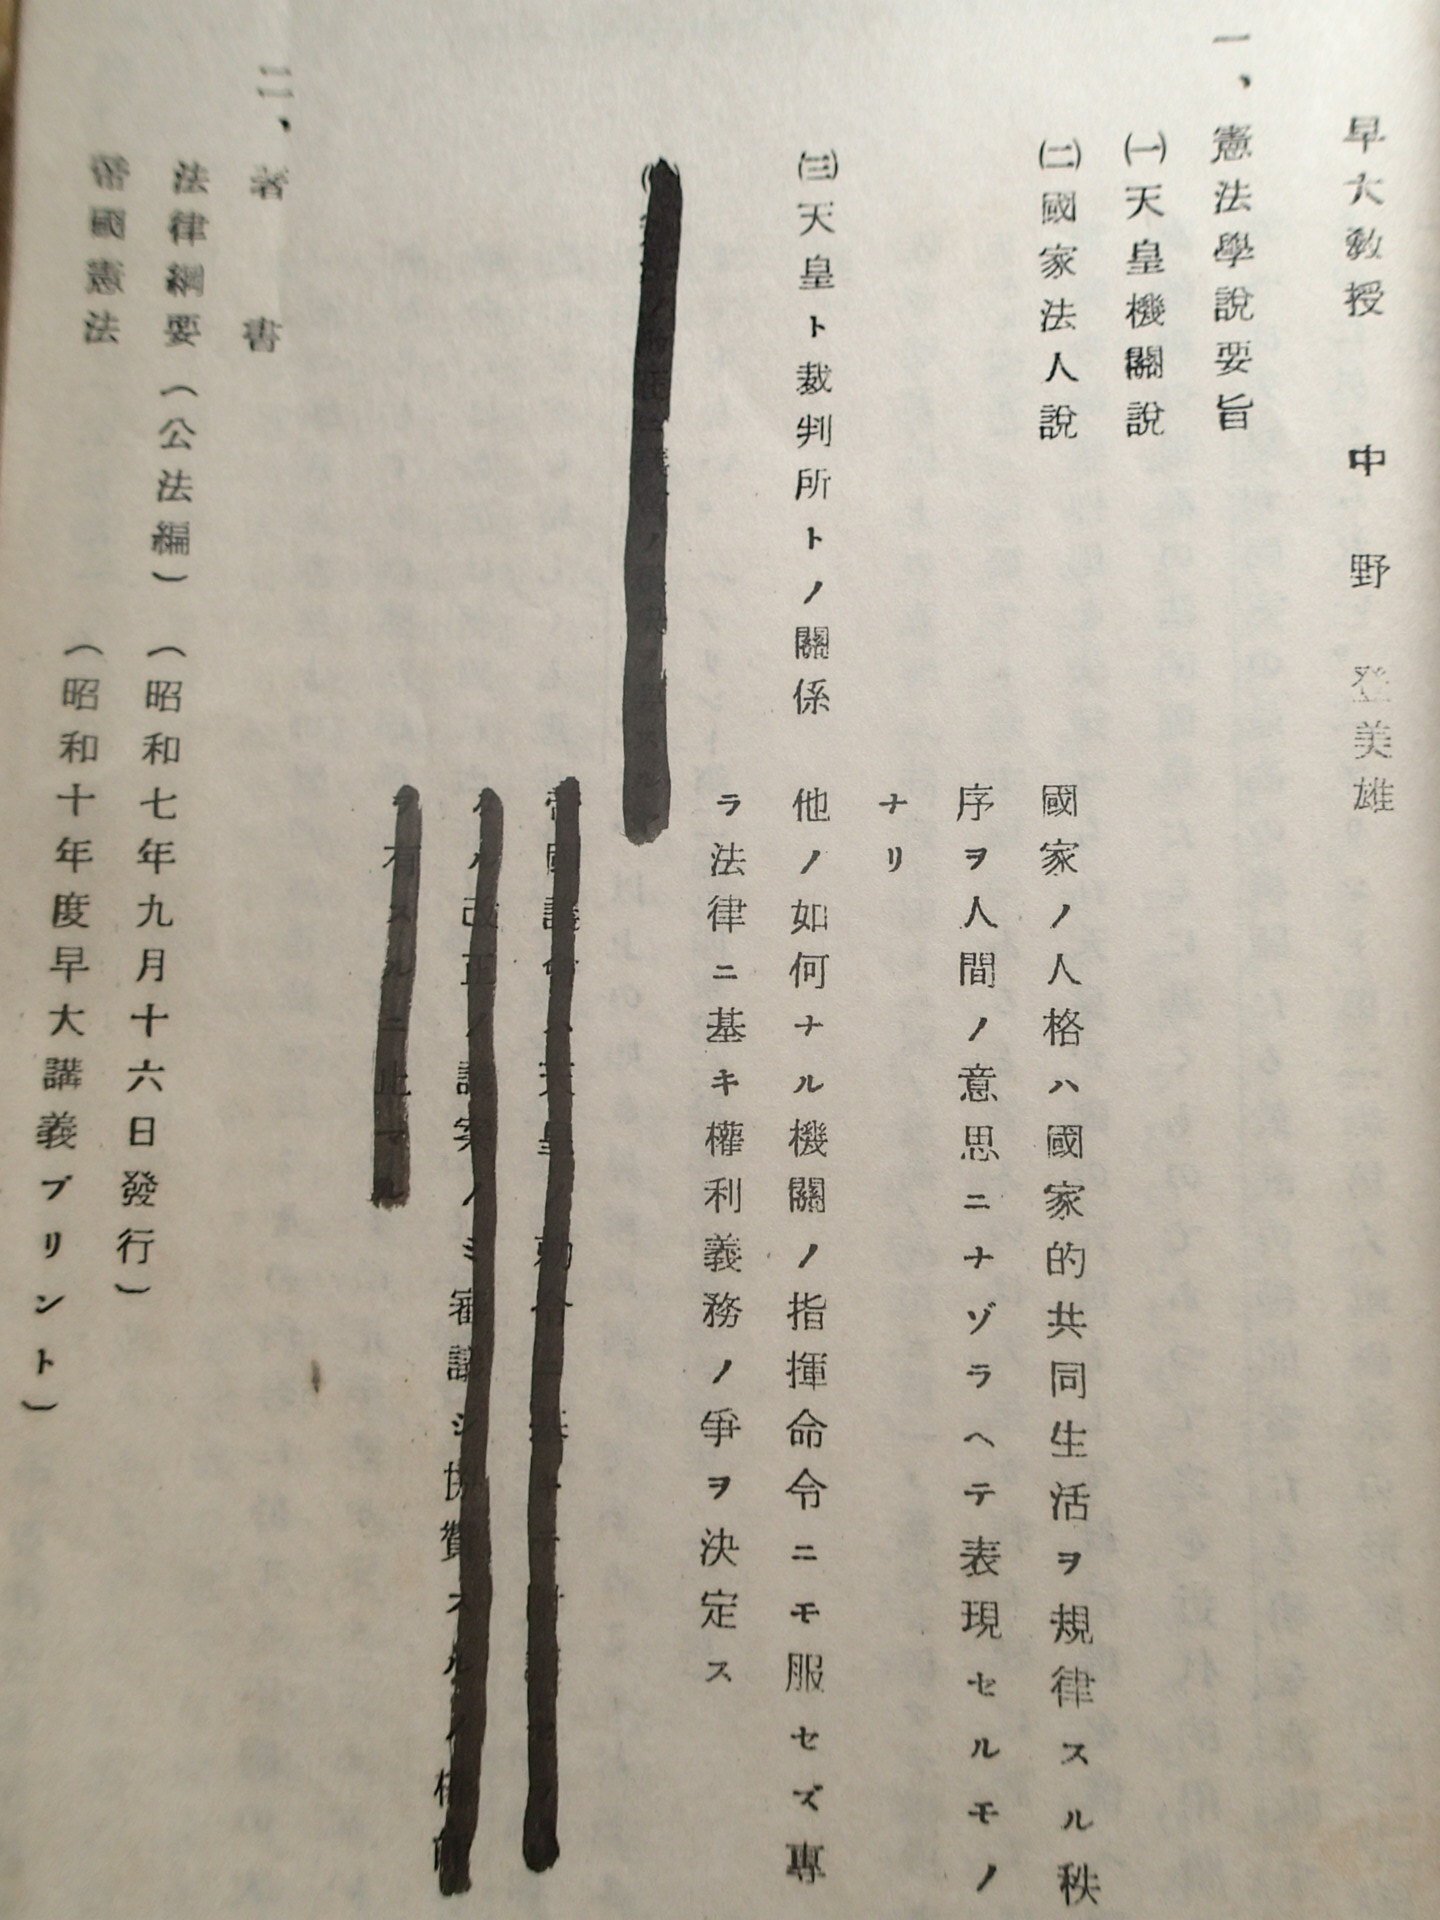 早大教授 中野登美雄
一、憲法學說要旨
㈠天皇機關說
㈡國家法人說
國家ノ人格ハ國家的共同生活ヲ規律スル秩
序ヲ人間ノ意思ニナゾラヘテ表現セルモノ
ナリ
㈢天皇ト裁判所トノ關係
他ノ如何ナル機關ノ指揮命令ニモ服セズ專
ラ法律ニ基キ權利義務ノ爭ヲ決定ス
帝國議會ハ天皇
ル改正ノ議案ノミ審議シ協贊スルノ權能
ヲ有スルニ止マル
二、著書
法律綱要（公法編）（昭和七年九月十六日發行）
帝國憲法（昭和十年度早大講義プリント）